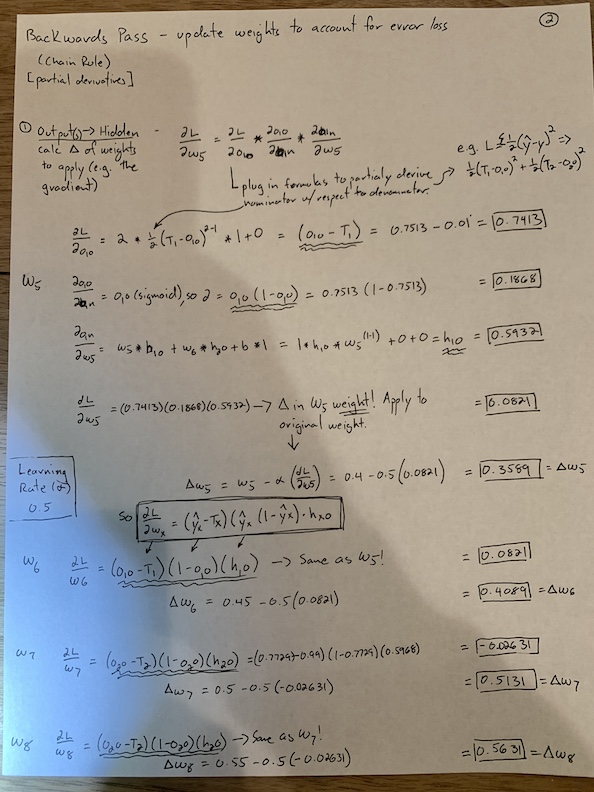 ②
Backwards Pass - update weights to account for error loss
(Chain Rule)
[partial derivatives]
① Output(s) → Hidden - ∂L/∂w5 = ∂L/∂o1o * ∂o1o/∂o1n * ∂o1n/∂w5
calc Δ of weights
to apply (e.g. the
gradient)
e.g. L = Σ½(ŷ-y)² =>
½(T1-o1o)² + ½(T2-o2o)²
plug in formulas to partialy derive
nominator w/ respect to denominator.
∂L/∂o1o = 2 * ½(T1-o1o)²⁻¹ * 1+0 = (o1o - T1) = 0.7513 - 0.01 = 0.7413
W5 ∂o1o/∂o1n = o1o (sigmoid), so ∂ = o1o (1-o1o) = 0.7513 (1-0.7513) = 0.1868
∂o1n/∂w5 = w5 * h1o + w6 * h2o + b * 1 = 1 * h1o * w5⁽¹⁻¹⁾ + 0 + 0 = h1o = 0.5932
∂L/∂w5 = (0.7413)(0.1868)(0.5932) → Δ in W5 weight! Apply to = 0.0821
original weight.
↓
Learning
Rate (α)
0.5
Δw5 = w5 - α (∂L/∂w5) = 0.4 - 0.5(0.0821) = 0.3589 = Δw5
So ∂L/∂wx = (ŷx - Tx)(ŷx (1-ŷx) · hxo
W6 ∂L/w6 = (o1o - T1)(1-o1o)(h1o) → Same as W5! = 0.0821
Δw6 = 0.45 - 0.5(0.0821) = 0.4089 = Δw6
W7 ∂L/w7 = (o2o - T2)(1-o2o)(h2o) = (0.7729-0.99)(1-0.7729)(0.5968) = -0.02631
Δw7 = 0.5 - 0.5(-0.02631) = 0.5131 = Δw7
W8 ∂L/w8 = (o2o - T2)(1-o2o)(h2o) → Same as W7!
Δw8 = 0.55 - 0.5(-0.02631) = 0.5631 = Δw8